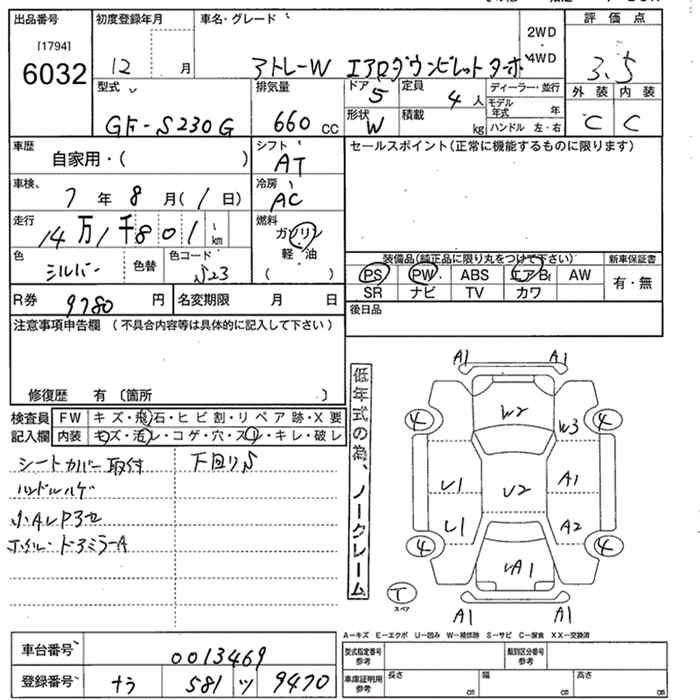 出品番号
[1794]
6032
初度登録年月
12 月
車名・グレード
アトレーW エアロダウンビレットターボ
2WD
4WD
評価点
3.5
外装 内装
C C
型式
GF-S230G
排気量
660 cc
ドア
5
形状
W
定員
4 人
積載
kg
ディーラー・並行
モデル年式 年
ハンドル 左・右
車歴
自家用・( )
シフト
AT
セールスポイント(正常に機能するものに限ります)
車検、
7 年 8 月(1 日)
冷房
AC
走行
14万1千801 km
燃料
ガソリン
軽・油
( )
色
シルバー
色替
色コード
S23
装備品(純正品に限り丸をつけて下さい)
新車保証書
PS PW ABS エアB AW
SR ナビ TV カワ
有・無
R券 9780 円
名変期限 月 日
後日品
注意事項申告欄(不具合内容等は具体的に記入して下さい)
修復歴 有〔箇所 〕
検査員記入欄
FW キズ・飛石・ヒビ割・リペア跡・X要
内装 キズ・汚レ・コゲ・穴・スリ・キレ・破レ
シートカバー取付
下回りS
ハンドルハゲ
小AレP3セ
ホイル・ドアミラーA
低年式の為、ノークレーム
A1 A1
W2
4 4
W3
U1 U2 A1
U1 A2
4 4
A1
T
スペア
A1 A1
A-キズ E-エクボ U-凹み W-補修跡 S-サビ C-腐食 XX-交換済
車台番号
0013469
登録番号
ナラ 581 ツ 9470
型式指定番号 参考
類別区分番号 参考
車庫証明用 参考
長さ cm
幅 cm
高さ cm